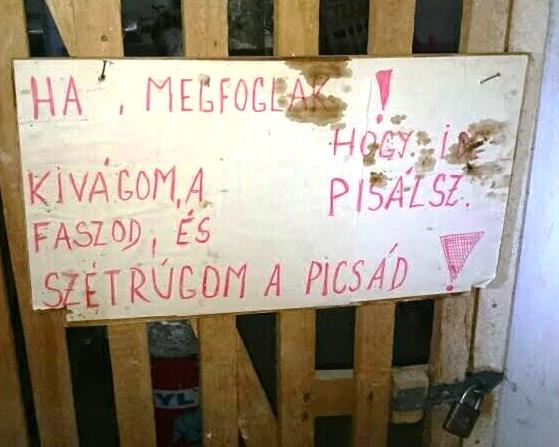 HA , MEGFOGLAK !
HOGY
KIVÁGOM, A PISÁLSZ.
FASZOD, ÉS
SZÉTRÚGOM A PICSÁD !
YL